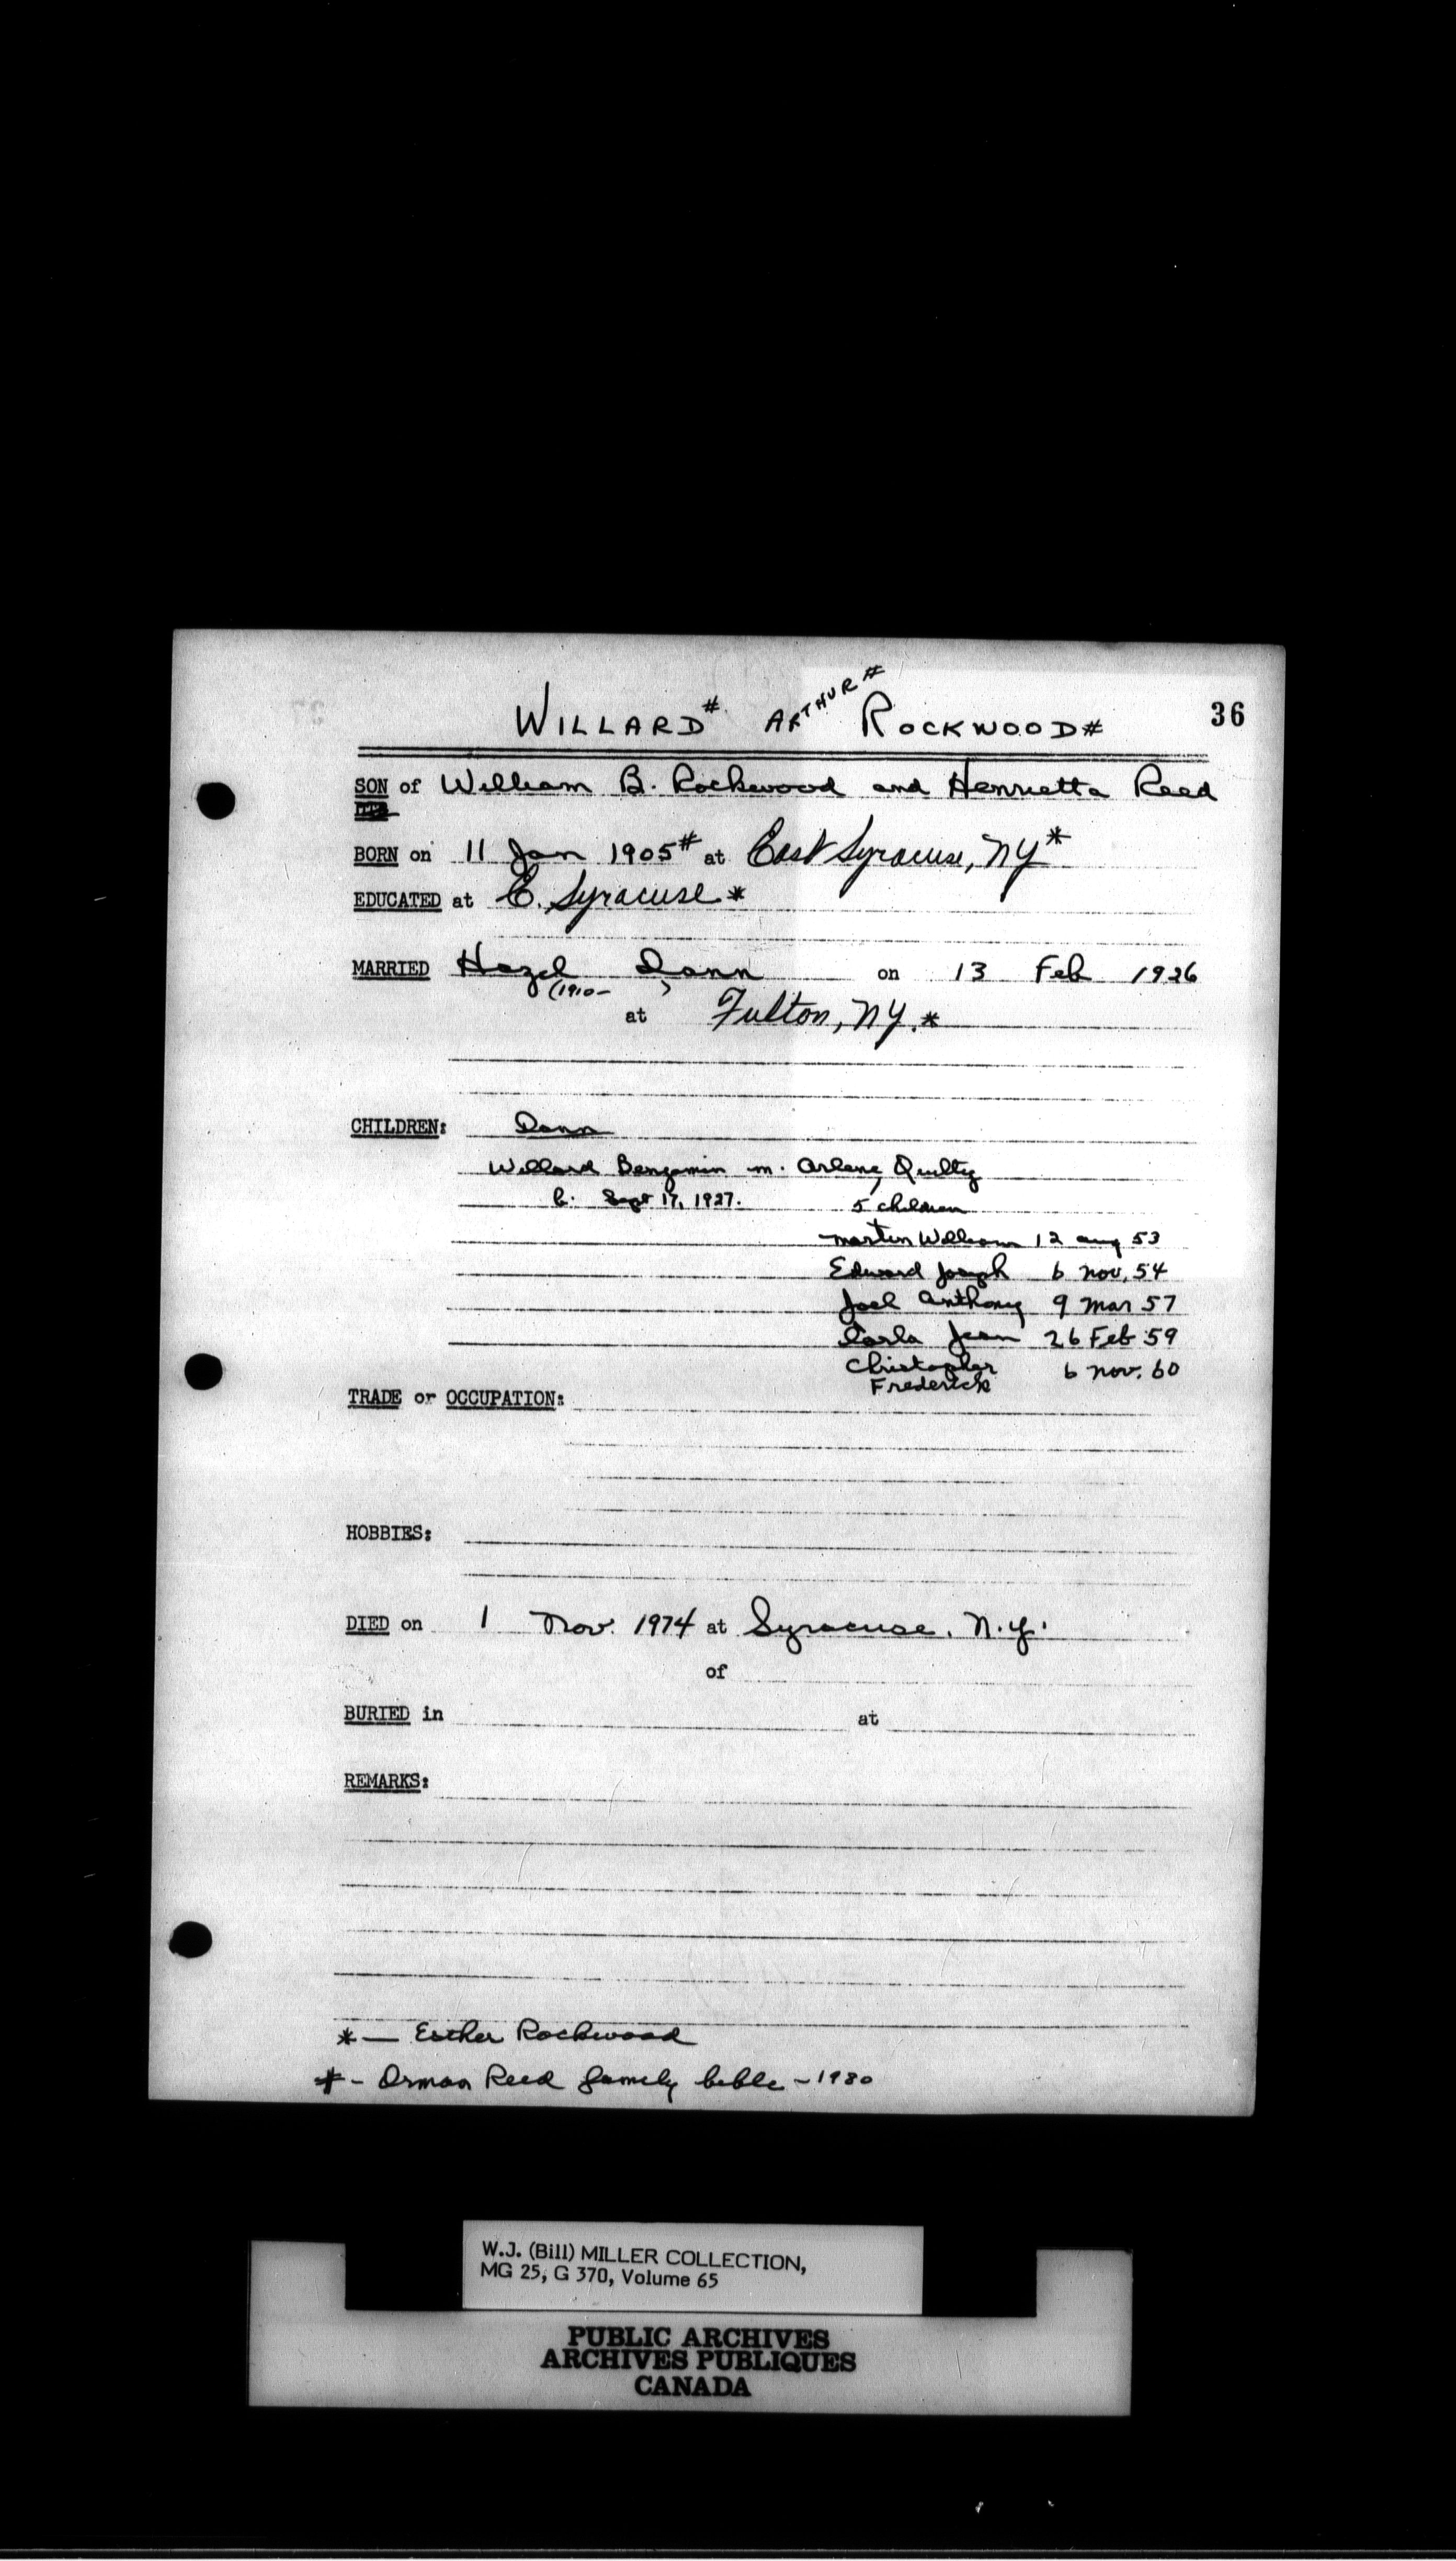 36
WILLARD# ARTHUR# ROCKWOOD#
SON of William B. Rockwood and Henrietta Reed
BORN on 11 Jan 1905# at East Syracuse, NY*
EDUCATED at E. Syracuse *
MARRIED Hazel Dann on 13 Feb 1926
(1910- )
at Fulton, NY. *
CHILDREN: Dann
Willard Benjamin m. Arlene Quilty
b. Sept 17, 1927. 5 children
Martin William 12 aug 53
Edward Joseph 6 nov, 54
Joel Anthony 9 mar 57
Carla Jean 26 Feb 59
Christopher 6 nov. 60
Frederick
TRADE or OCCUPATION:
HOBBIES:
DIED on 1 Nov. 1974 at Syracuse, N.Y.
of
BURIED in at
REMARKS:
* — Esther Rockwood
# - Orman Reed family bible - 1980
W.J. (Bill) MILLER COLLECTION,
MG 25, G 370, Volume 65
PUBLIC ARCHIVES
ARCHIVES PUBLIQUES
CANADA